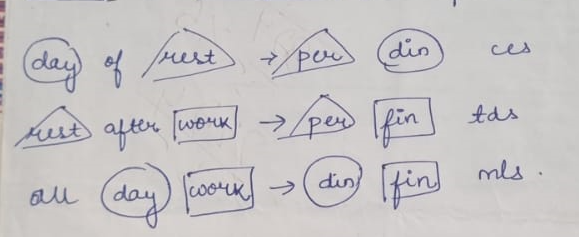 day of rest → per din ces
rest after work → per fin tds
all day work → din fin mls.